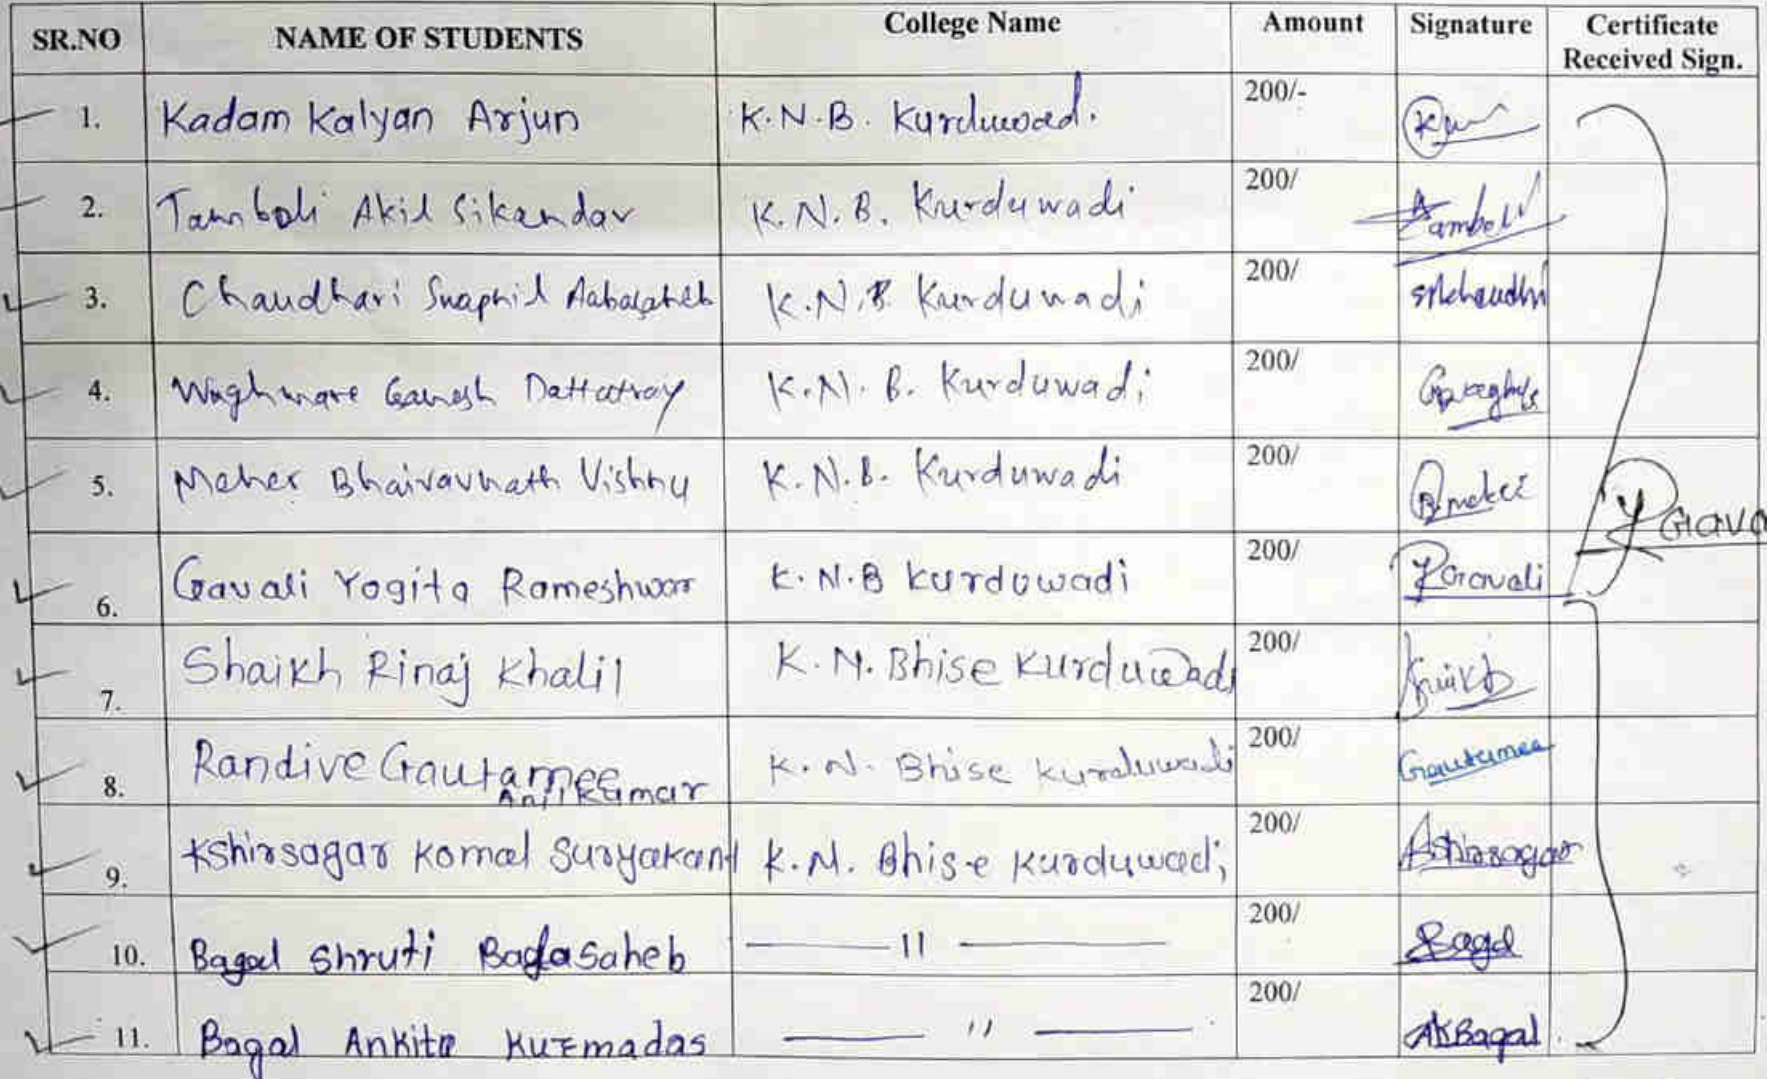 SR.NO NAME OF STUDENTS College Name Amount Signature Certificate Received Sign.
1. Kadam Kalyan Arjun K.N.B. Kurduwad. 200/-
2. Tamboli Akil Sikandar K.N.B. Kurduwadi 200/ Tamboli
3. Chaudhari Swapnil Aabasaheb K.N.B Kurduwadi 200/
4. Waghmare Ganesh Dattatray K.N.B. Kurduwadi 200/
5. Meher Bhairavnath Vishnu K.N.B. Kurduwadi 200/
Y Gava
6. Gavali Yogita Rameshwar K.N.B Kurduwadi 200/ YGavali
7. Shaikh Rinaj Khalil K.N. Bhise Kurduwadi 200/
8. Randive Gautamee Anilkumar K.N. Bhise Kurduwadi 200/ Gautamee
9. Kshirsagar Komal Suryakant K.N. Bhise Kurduwadi 200/ Kshirsagar
10. Bagal Shruti Balasaheb —— 11 —— 200/ Bagal
11. Bagal Ankita —— 11 —— 200/ AKBagal